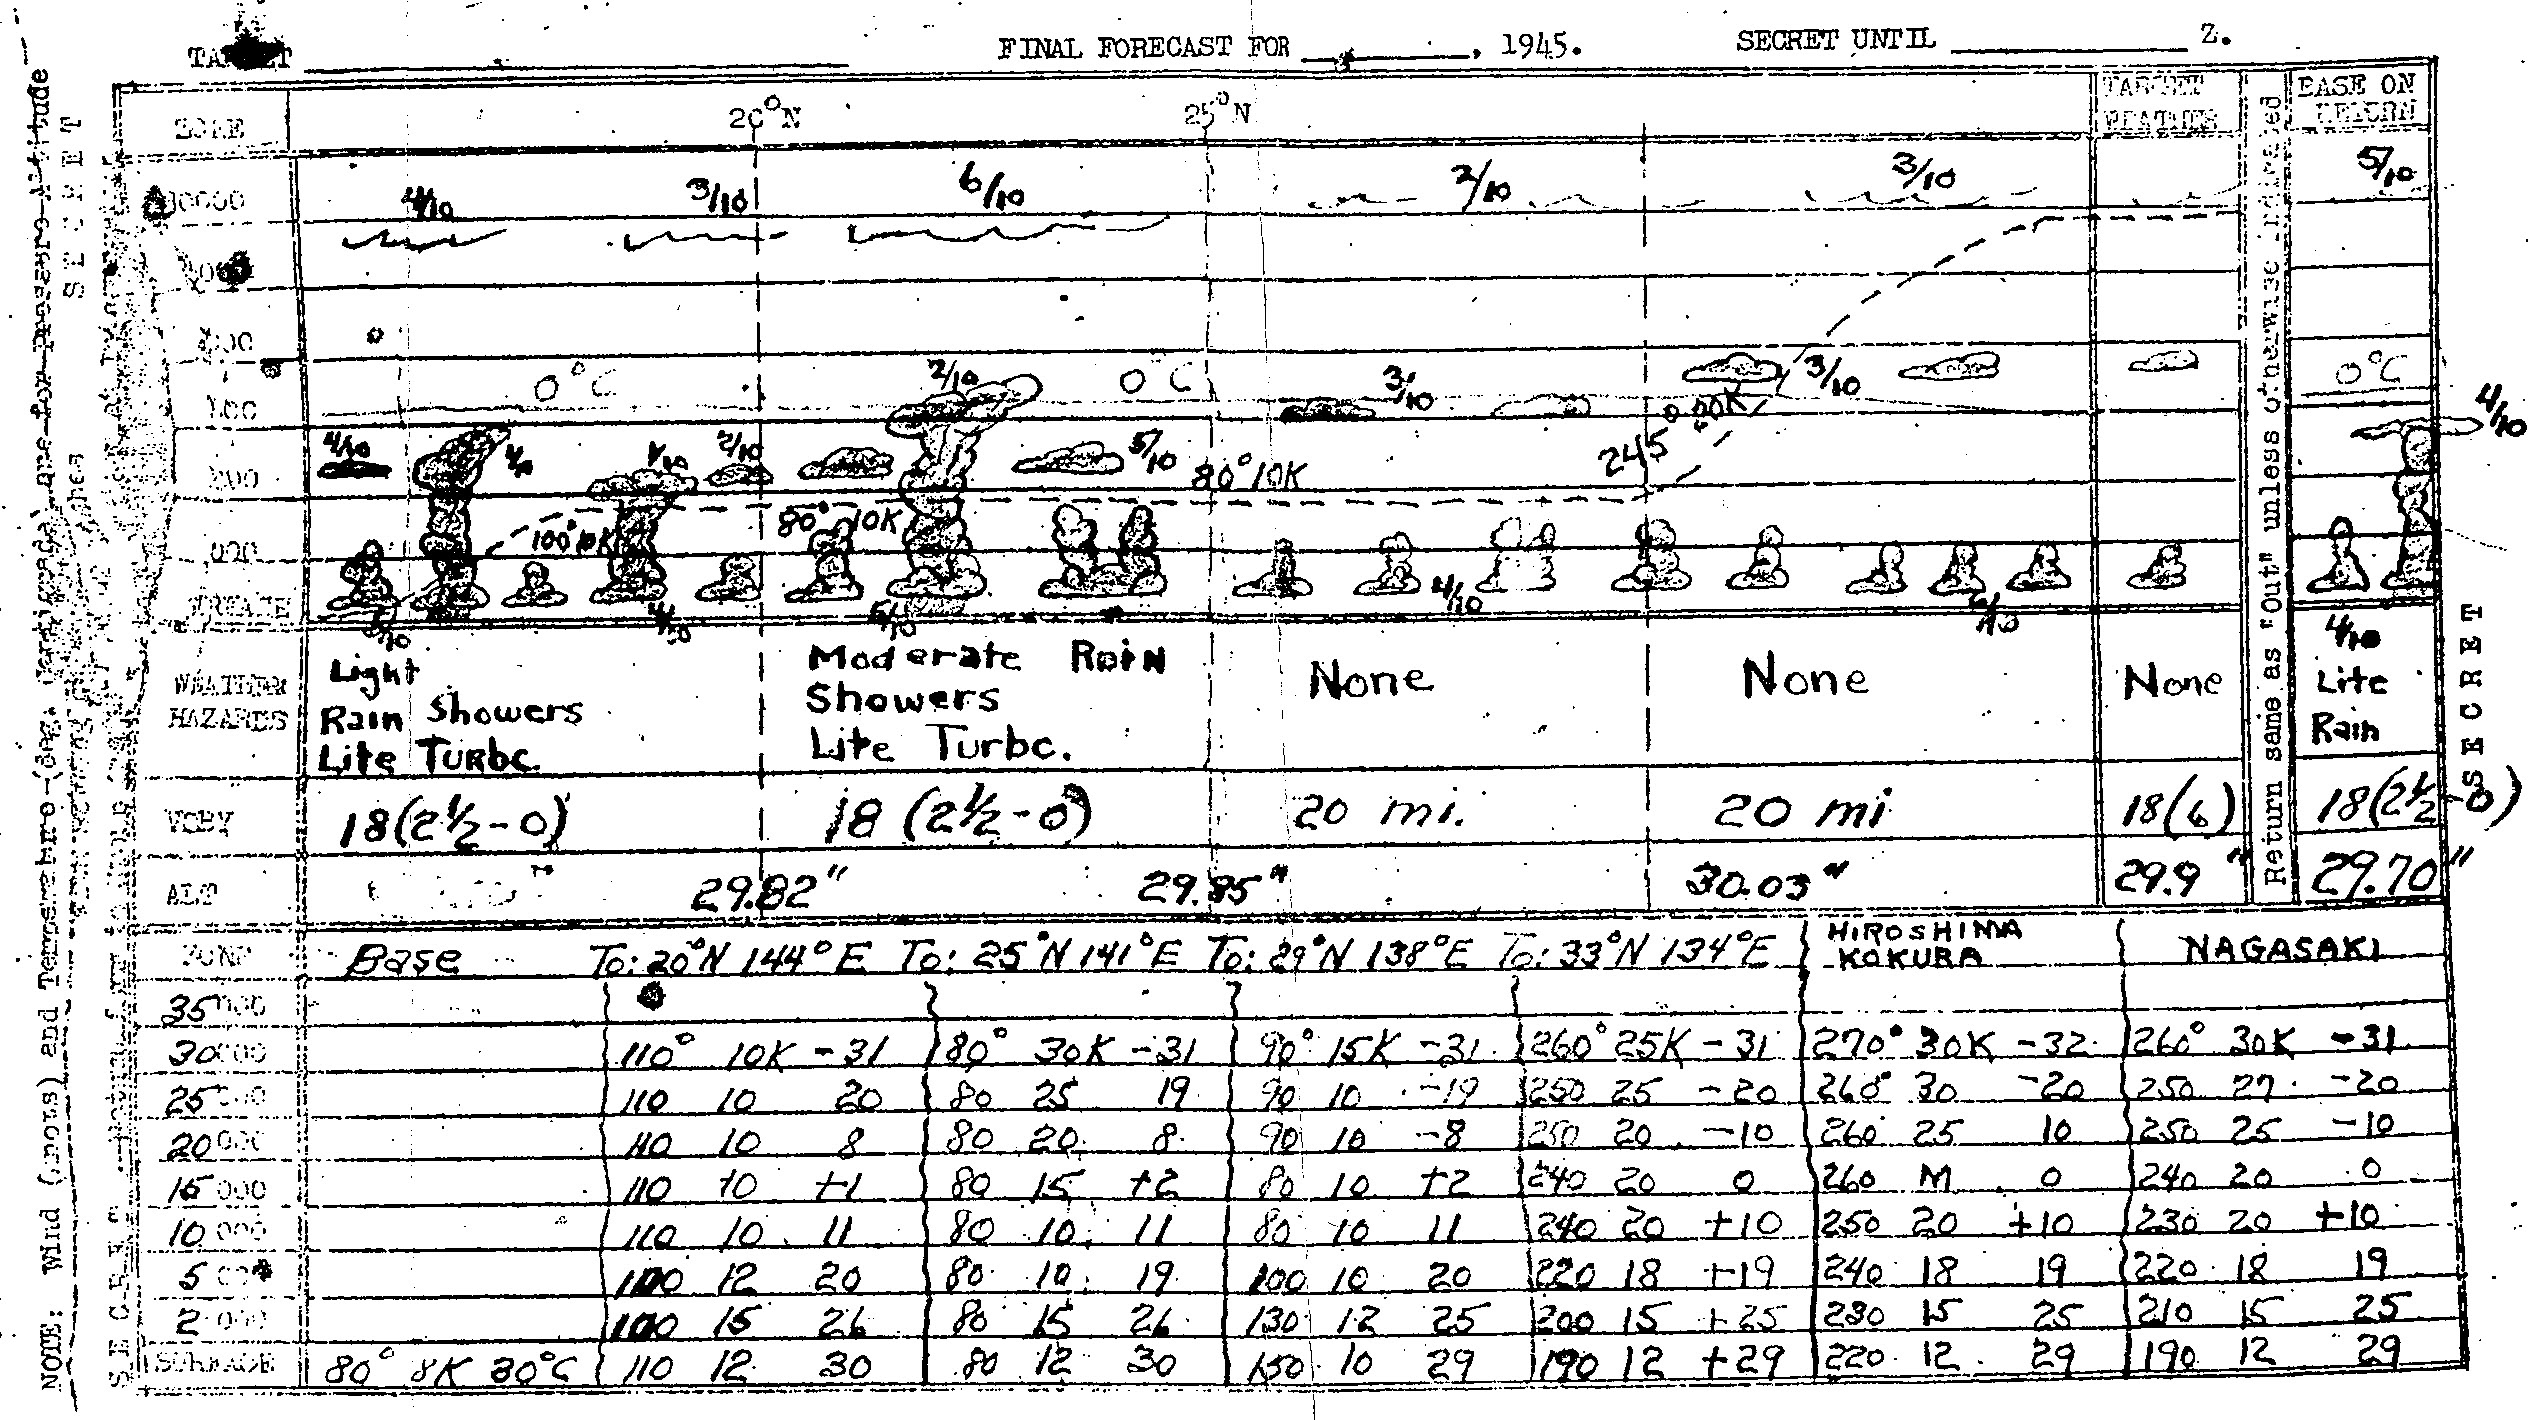 FINAL FORECAST FOR ________, 1945. SECRET UNTIL ________ Z.
ZONE 20°N 25°N TARGET WEATHER BASE ON RETURN
4/10 3/10 6/10 2/10 3/10 5/10
0°C 2/10 0°C 3/10 3/10 0°C
4/10
4/10 1/10 2/10 5/10 80° 10K 245°
100° 10K 80° 10K
SURFACE
4/10 4/10
WEATHER HAZARDS
Light Rain Showers Lite Turbc.
Moderate Rain Showers Lite Turbc.
None
None
None
4/10 Lite Rain
VSBY 18(2½-0) 18 (2½-0) 20 mi. 20 mi 18(6) 18(2½-0)
ALT 29.82" 29.85" 30.03" 29.9 " 29.70"
ZONE Base To: 20°N 144°E To: 25°N 141°E To: 29°N 138°E To: 33°N 134°E HIROSHIMA KOKURA NAGASAKI
35000
30000 110° 10K -31 80° 30K -31 90° 15K -31 260° 25K -31 270° 30K -32 260° 30K -31
25000 110 10 20 80 25 19 90 10 -19 250 25 -20 260° 30 -20 250 27 -20
20000 110 10 8 80 20 8 90 10 -8 250 20 -10 260 25 10 250 25 -10
15000 110 10 +1 80 15 +2 80 10 +2 240 20 0 260 M 0 240 20 0
10000 110 10 11 80 10 11 80 10 11 240 20 +10 250 20 +10 230 20 +10
5000 100 12 20 80 10 19 100 10 20 220 18 +19 240 18 19 220 18 19
2000 100 15 26 80 15 26 130 12 25 200 15 +25 230 15 25 210 15 25
SURFACE 80° 8K 30°C 110 12 30 80 12 30 150 10 29 190 12 +29 220 12 29 190 12 29
Return same as "Out" unless otherwise indicated
SECRET
SECRET
SECRET
NOTE: Wind (knots) and Temperature (deg. Centigrade) are for pressure altitude